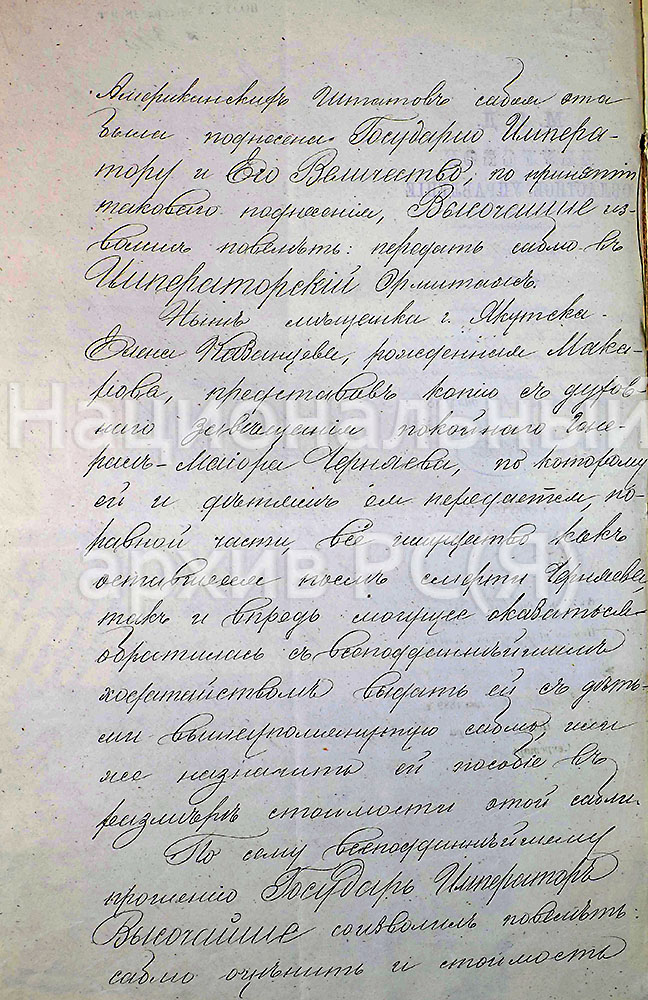 Американскихъ Штатовъ сабля эта
была поднесена Государю Импера-
тору и Его Величество, по принятіи
таковаго поднесенія, Высочайше из-
волилъ повелѣть: передать саблю въ
Императорскій Эрмитажъ.
Нынѣ мѣщанка г. Якутска
Елена Казанцева, рожденная Мака-
рова, представивъ копію съ духов-
наго завѣщанія покойнаго Гене-
ралъ-Маіора Черняева, по которому
ей и дѣтямъ ея передается, по
равной части, всё имущество какъ
оставшееся послѣ смерти Черняева,
такъ и впредь могущее оказаться
обратилась съ всеподданнѣйшимъ
ходатайствомъ выдать ей съ дѣть-
ми вышеупомянутую саблю или
же назначить ей пособіе въ
размѣрѣ стоимости этой сабли.
По сему всеподданнѣйшему
прошенію Государь Императоръ
Высочайше соизволилъ повелѣть:
саблю оцѣнить и стоимость
Национальный
архив РС(Я)